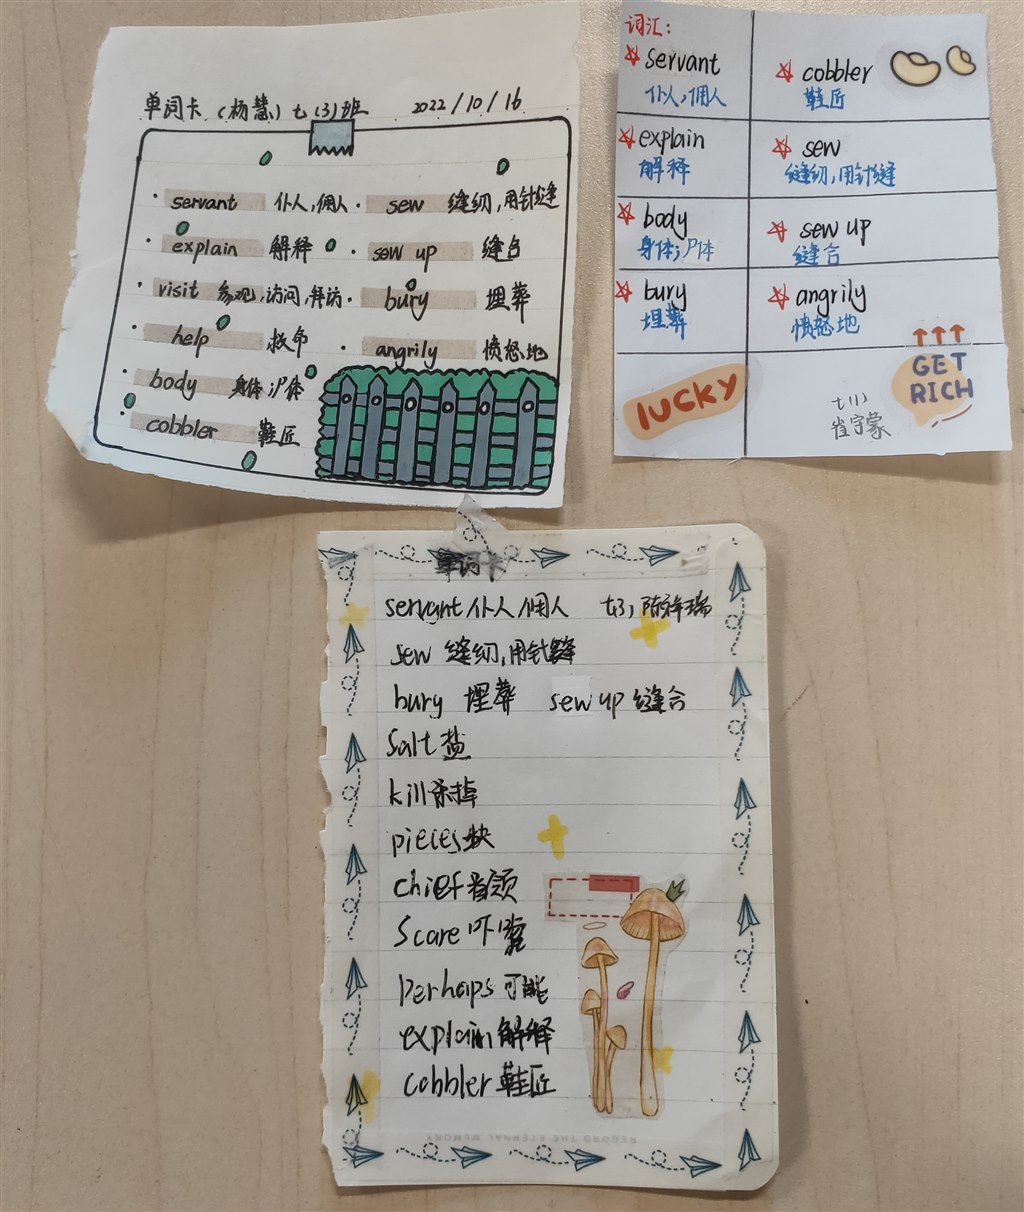 单词卡（杨慧）七（3）班 2022/10/16
servant 仆人,佣人 · sew 缝纫,用针缝
explain 解释 · sew up 缝合
visit 参观,访问,拜访 · bury 埋葬
help 救命 · angrily 愤怒地
body 身体;尸体
cobbler 鞋匠
词汇:
servant cobbler
仆人,佣人 鞋匠
explain sew
解释 缝纫,用针缝
body sew up
身体;尸体 缝合
bury angrily
埋葬 愤怒地
GET
lucky RICH
七(1)
崔宁蒙
单词卡
servant 仆人,佣人 七3,
sew 缝纫,用针缝
bury 埋葬 sew up 缝合
Salt 盐
kill 杀掉
pieces 块
chief 首领
Scare 吓唬
perhaps 可能
explain 解释
cobbler 鞋匠
RECORD THE ETERNAL MEMORY